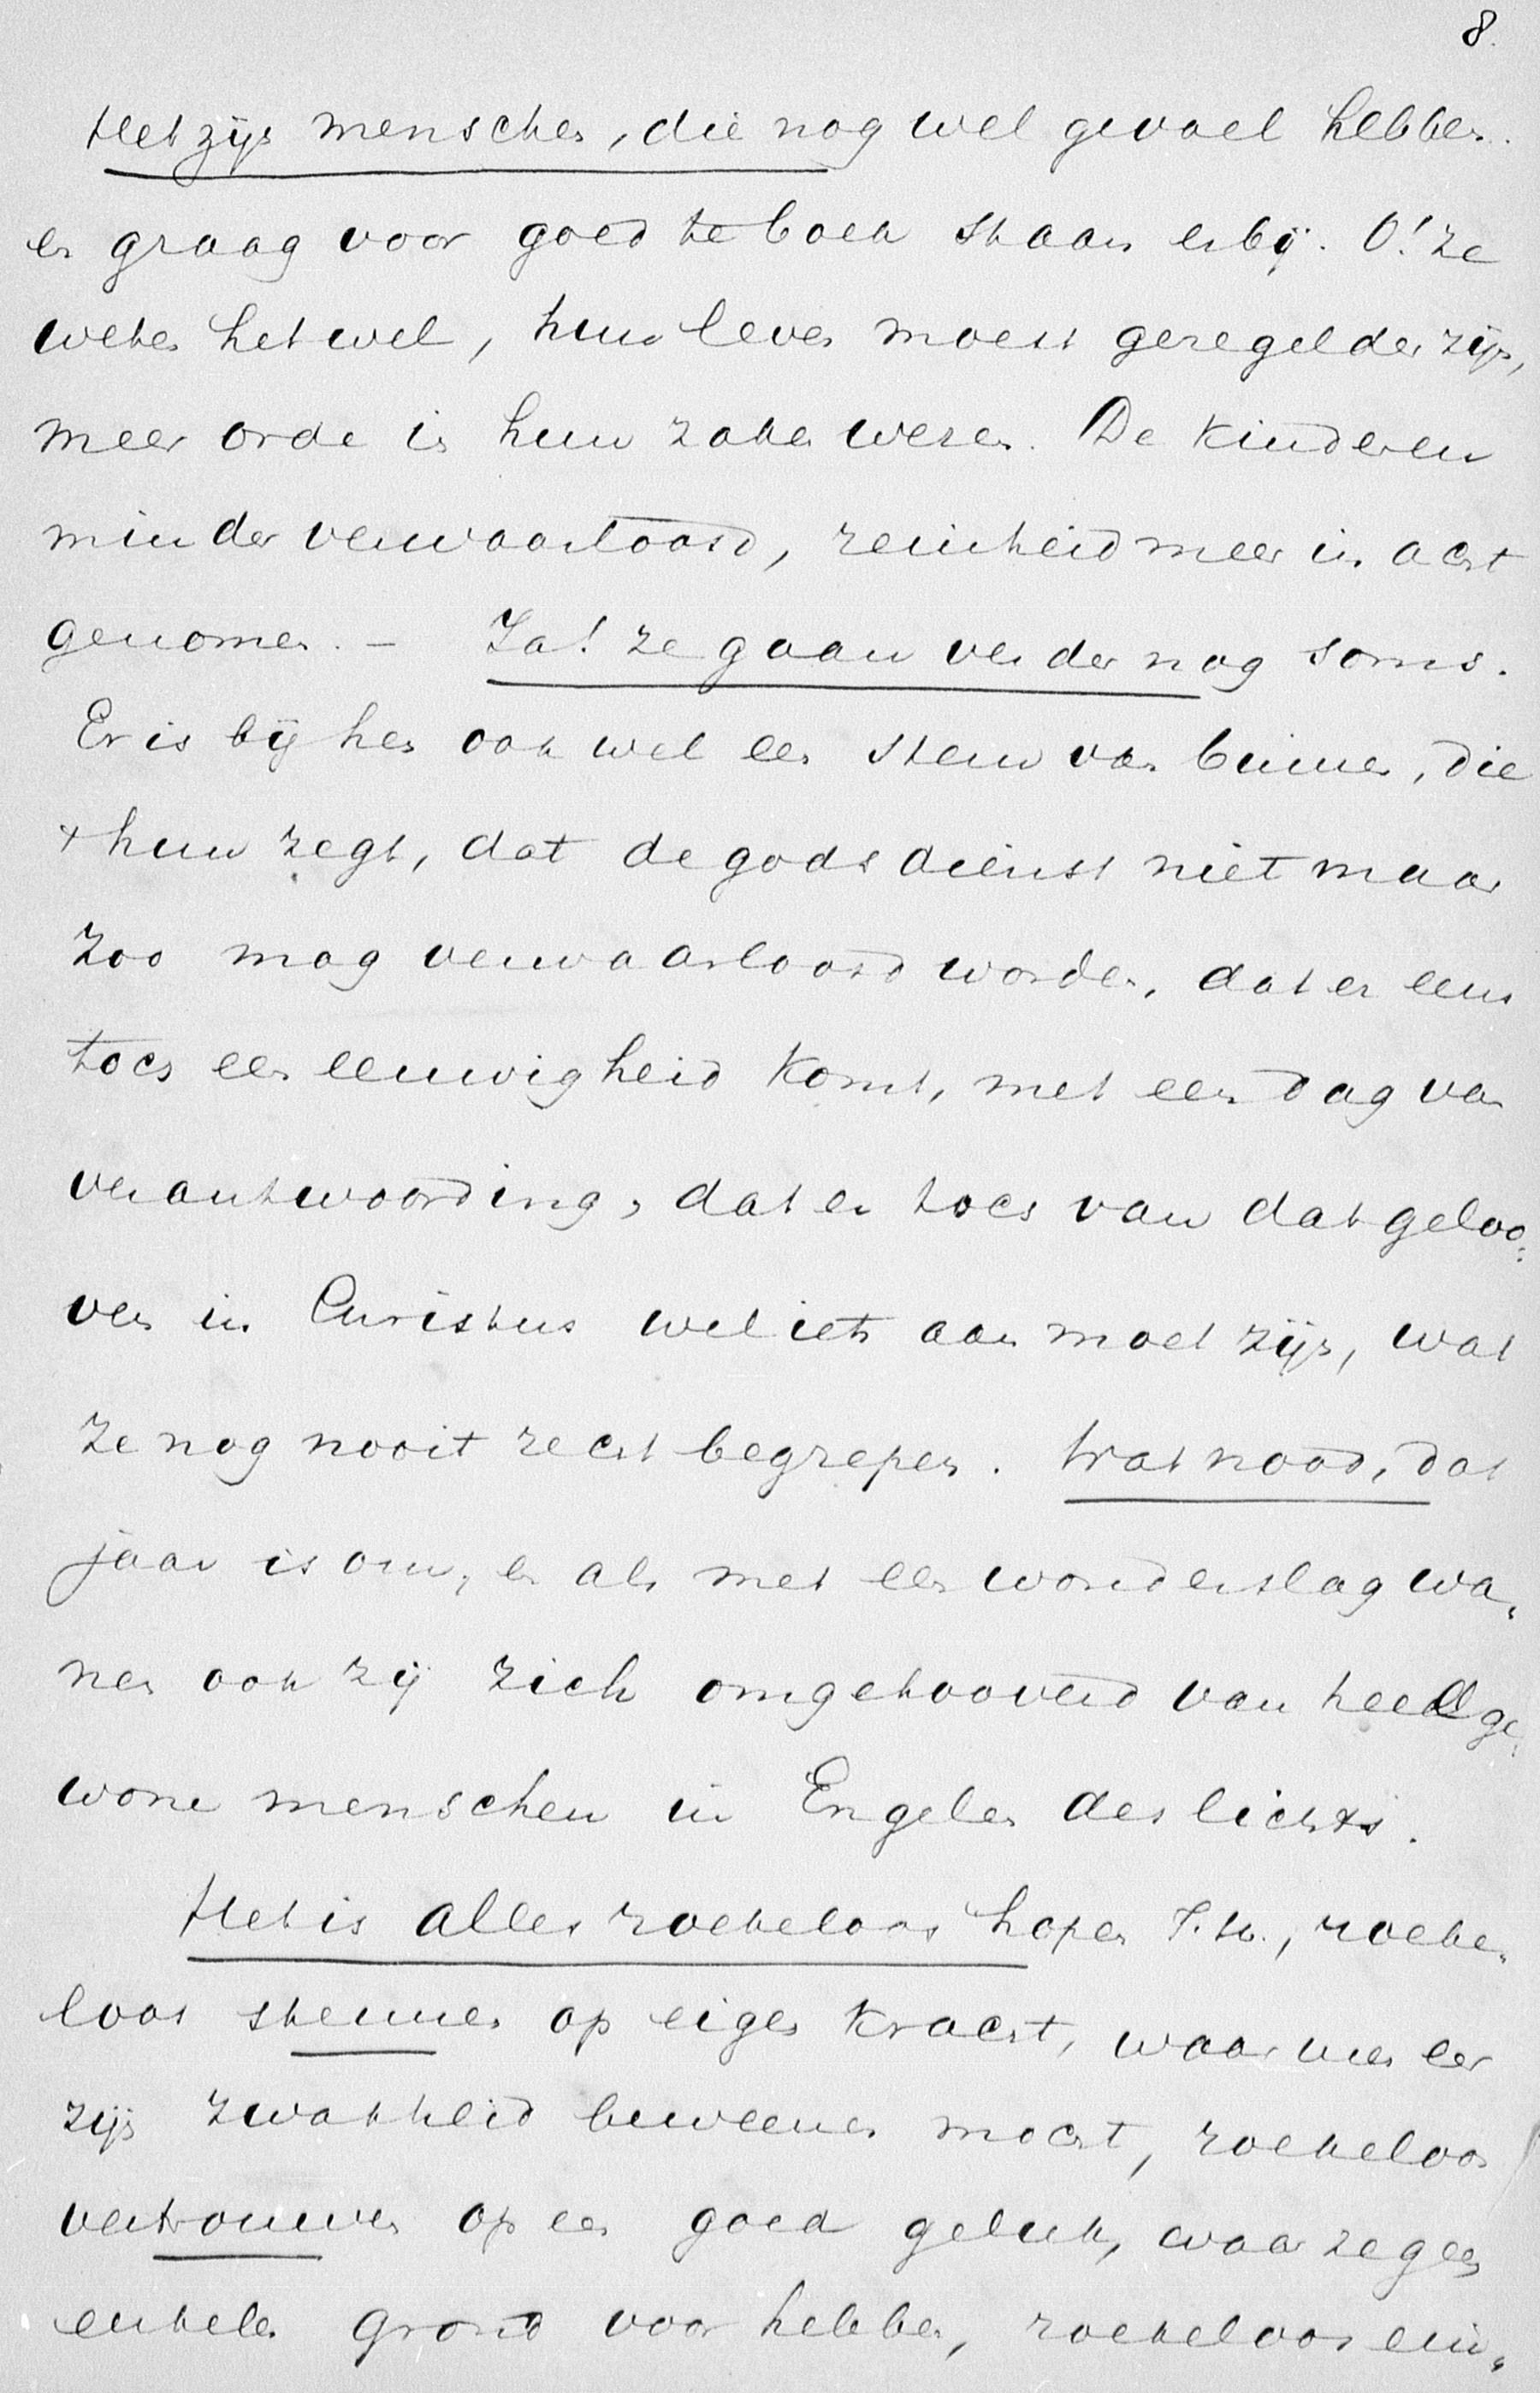 8.
Het zijn menschen, die nog wel gevoel hebben.
en graag voor goed te boek staan erbij. O! ze
weten het wel, hun leven moest geregelder zijn,
meer orde in hun zaken wezen. De kinderen
minder verwaarloosd, reinheid meer in acht
genomen. – Ja! ze gaan verder nog soms.
Er is bij hen ook wel een stem van binnen, die
hun zegt, dat de godsdienst niet maar
zoo mag verwaarloosd worden, dat er eens
toch een eeuwigheid komt, met een dag van
verantwoording, dat er toch van dat geloo:
ven in Christus wel iets aan moet zijn, wat
ze nog nooit recht begrepen. Wat nood, dat
jaar is om, en als met een wonderslag wa„
nen ook zij zich omgetooverd van heel ge„
wone menschen in Engelen des lichts.
Het is alles roekeloos hopen T. H., roeke„
loos steunen op eigen kracht, waar men eer
zijn zwakheid beweenen mocht, roekeloos
vertrouwen op een goed geluk, waar ze geen
enkelen grond voor hebben, roekeloos ein„